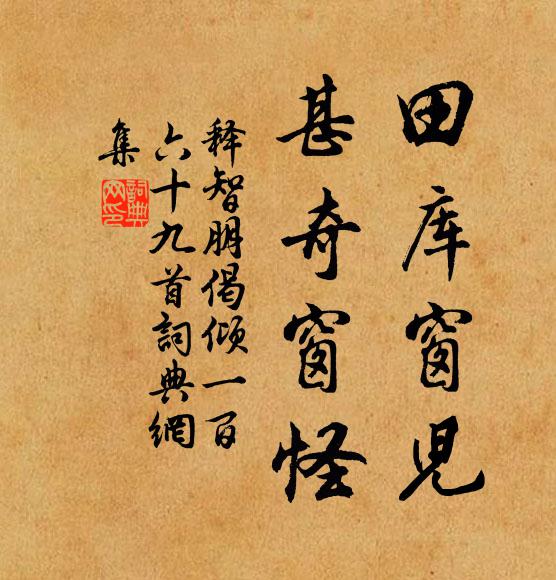 田库窗児
甚奇窗怪
释智朋偈倾一百
六十九首詞典網
集
詞典
网印